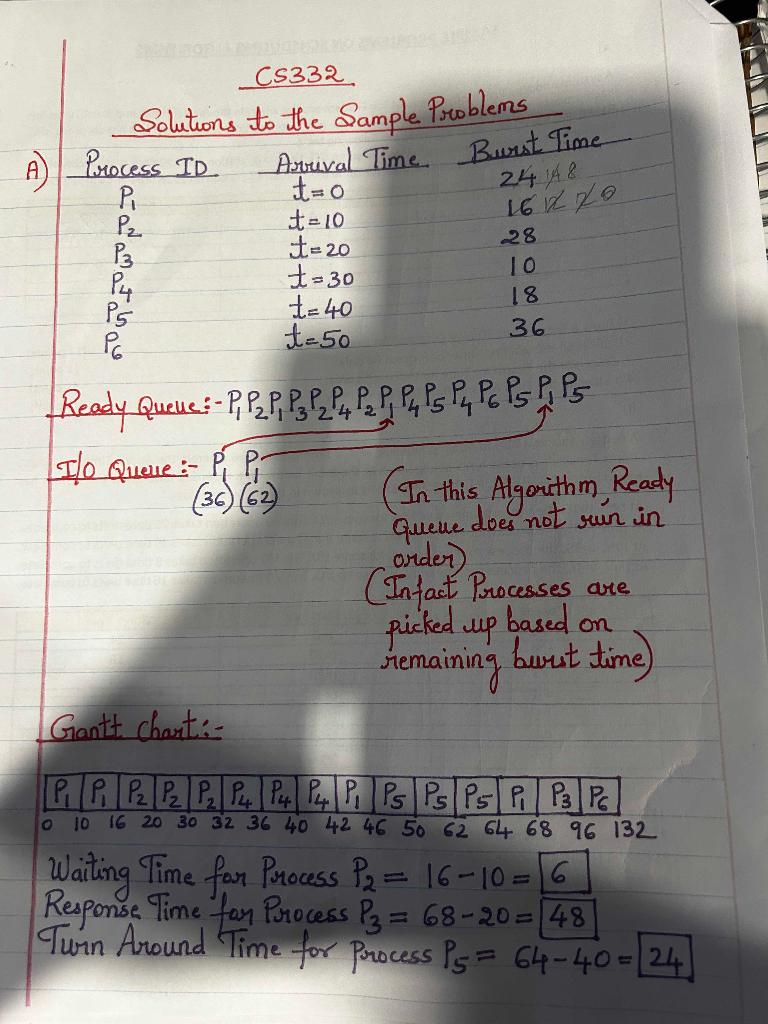 CS332
Solutions to the Sample Problems
A) Process ID Arrival Time Burst Time
P1 t=0 24
P2 t=10 16
P3 t=20 28
P4 t=30 10
P5 t=40 18
P6 t=50 36
Ready Queue:- P1 P2 P1 P3 P2 P4 P2 P1 P4 P5 P4 P6 P5 P1 P5
I/O Queue:- P1 P1
(36) (62)
(In this Algorithm, Ready
Queue does not run in
order)
(Infact Processes are
picked up based on
remaining burst time)
Gantt Chart:-
P1 P1 P2 P2 P2 P4 P4 P4 P1 P5 P5 P5 P1 P3 P6
0 10 16 20 30 32 36 40 42 46 50 62 64 68 96 132
Waiting Time for Process P2 = 16-10 = 6
Response Time for Process P3 = 68-20 = 48
Turn Around Time for process P5 = 64-40 = 24